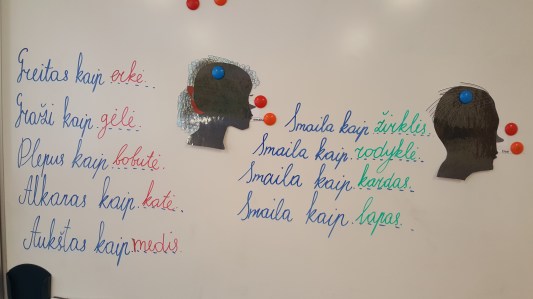 Greitas kaip erkė.
Graži kaip gėlė.
Plepus kaip bobutė.
Alkanas kaip katė.
Aukštas kaip medis
Smaila kaip žirklės.
Smaila kaip rodyklė.
Smaila kaip kardas.
Smaila kaip lapas.